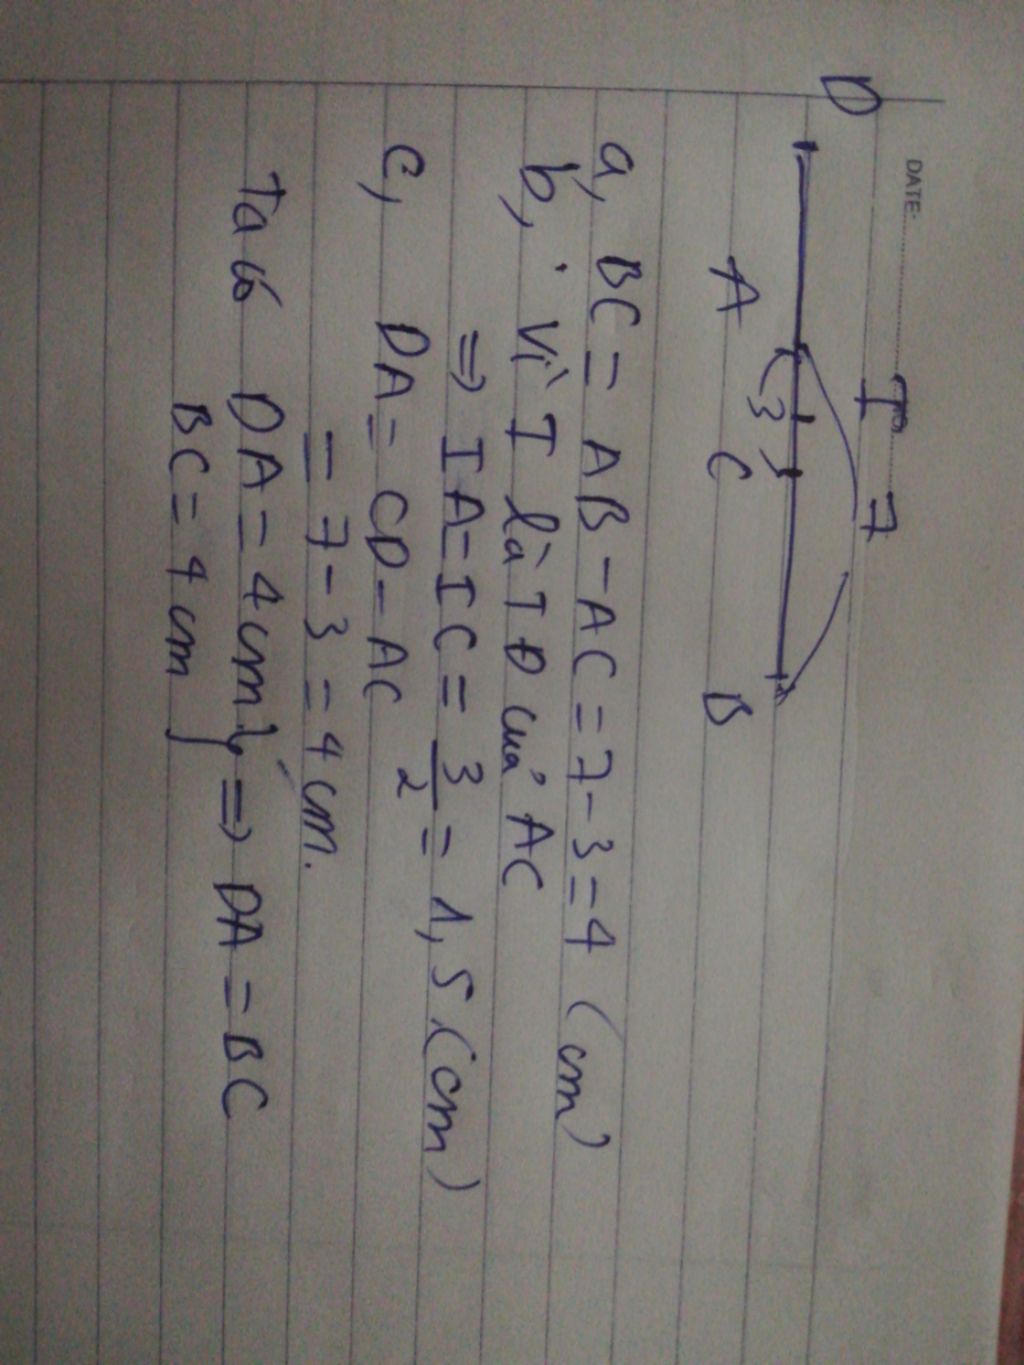 DATE:
D I 7
3
A C B
a, BC = AB - AC = 7 - 3 = 4 (cm)
b, . Vì I là TĐ của AC
=> IA = IC = 3/2 = 1,5 (cm)
c, DA = CD - AC
= 7 - 3 = 4 cm.
Ta có DA = 4 cm } => DA = BC
BC = 4 cm